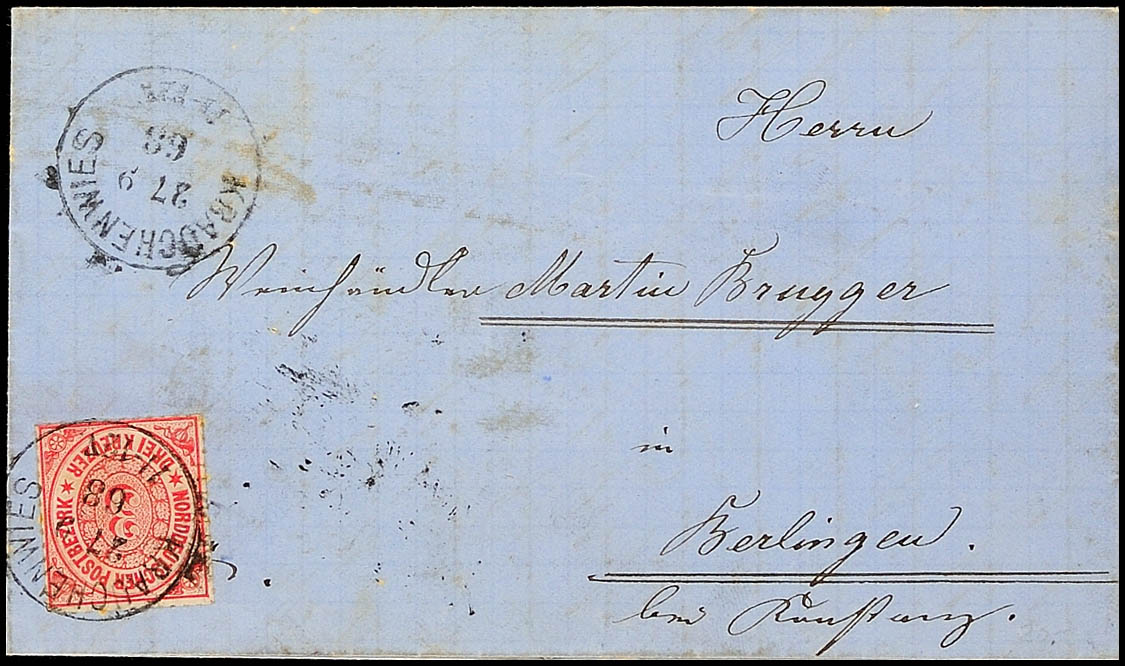 KRAUCHENWIES
27 9
68
Herrn
Weinhändler Martin Brugger
in
Berlingen.
bei Konstanz.
NORDDEUTSCHER POSTBEZIRK
DREI KREUZER
3
KRAUCHENWIES
27 9
68